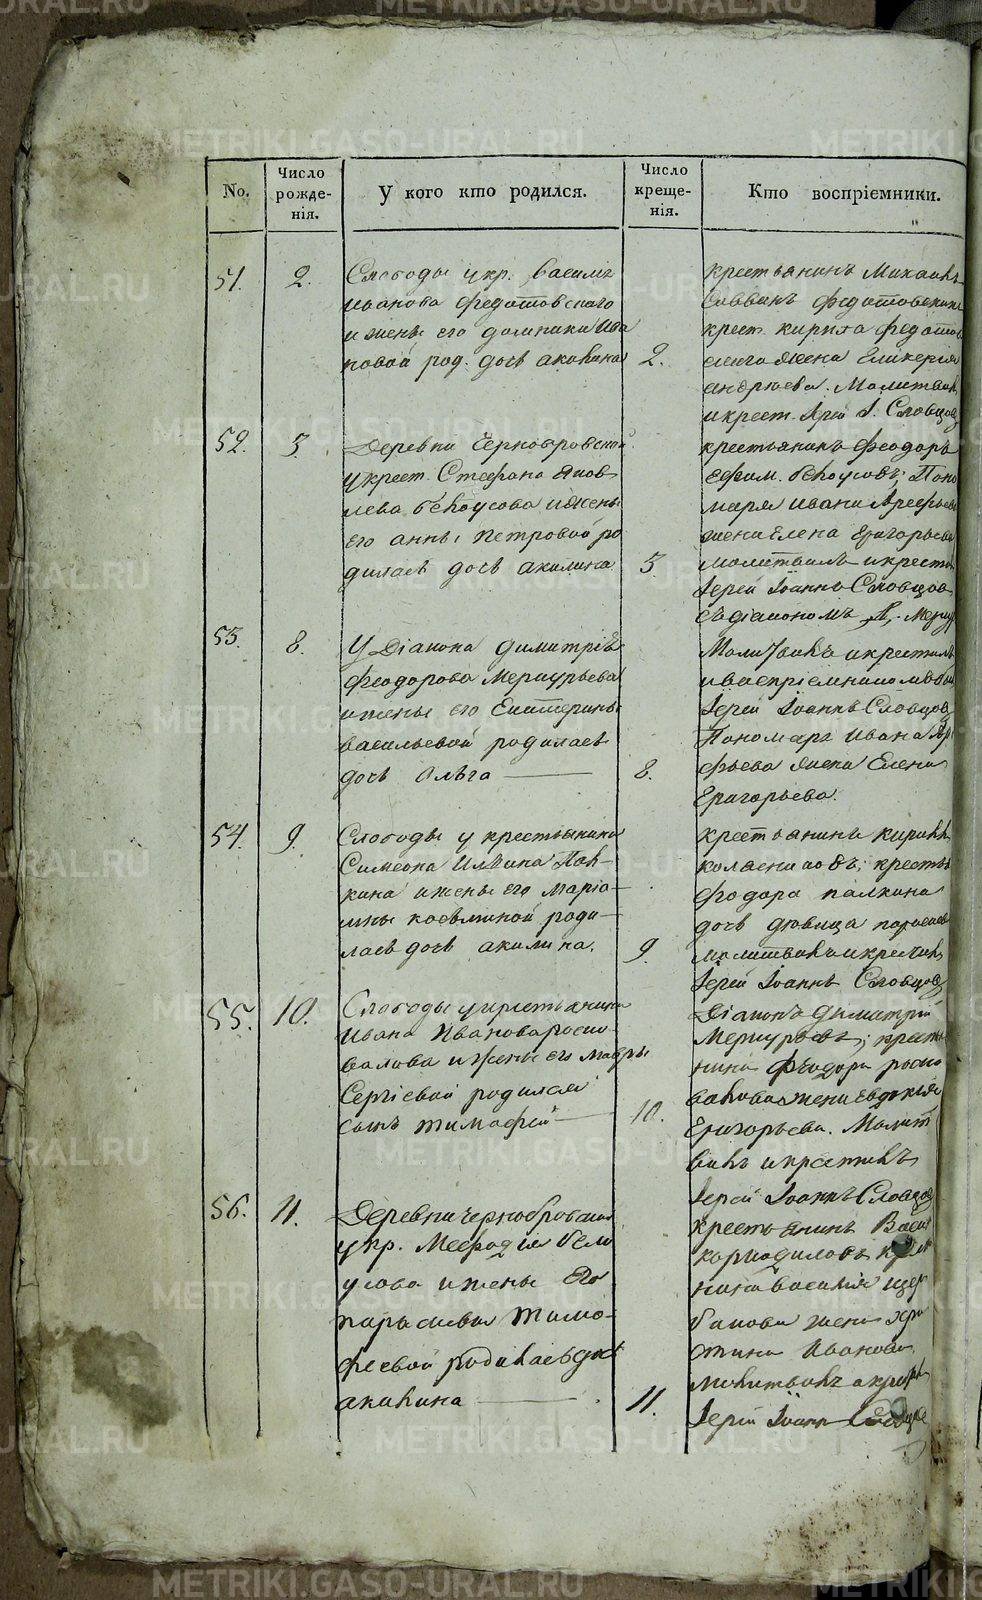 No.
Число рожде-нія.
У кого кто родился.
Число креще-нія.
Кто воспріемники.
51.
2.
Слободы у кр. Василія
Иванова Федотовскаго
и жены его Домники Ива
новой род. дочь Акилина
2.
крестьянинъ Михаилъ
Саввинъ Федотовскихъ
крест. Кирила Федотов
скаго жена Гликерія
Андреева. Молитвил.
и крест. Iерей I. Словцов
52.
3
Деревни Чернобровской
у крест. Стефана Яков
лева Белоусова и жены
его Анны Петровой ро
дилась дочь Акилина
3.
крестьянинъ Феодоръ
Ефим. Белоусовъ; Поно
маря Ивана Арефьева
жена Елена Григорьева
молитвилъ и крестил
Іерей Іоаннъ Словцов
съ діакономъ Д. Меркур
53.
8.
У Діакона Димитрія
Феодорова Меркурьева
и жены его Екатерины
Васильевой родилась
дочь Ольга
8.
Молитвилъ и крестилъ
и воспріемникомъ был
Іерей Іоаннъ Словцов
Пономаря Ивана Аре
фьева жена Елена
Григорьева.
54.
9.
Слободы у крестьянина
Симеона Ильина Пал-
кина и жены его Маріа-
мны Козьминой роди-
лась дочь Акилина.
9.
крестьянинъ Кирилъ
крестья
Фодора Палкина
дочь девица
молитвилъ и крестилъ
Іерей Іоаннъ Словцов
55.
10.
Слободы у крестьянина
Ивана Иванова Роско-
валова и жены его Мавры
Сергіевой родился
сынъ Тимофей
10.
Діаконъ Димитрій
Меркурьевъ; кресть
нина Феодора Роско
валова жена Евдокія
Григорьева. Молит
вилъ и крестилъ
Іерей Іоаннъ Словцов
56.
11.
Деревни Чернобровской
у кр. Мефодія Бело
усова и жены его
Парасковьи Тимо-
феевой родилась дочь
Акилина
11.
крестьянинъ Васил
Кормадиловъ крест
нина Василія Щер
бакова жена Хри
стина Иванова
Молитвилъ и крест
Іерей Іоанн Словцов
METRIKI.GASO-URAL.RU